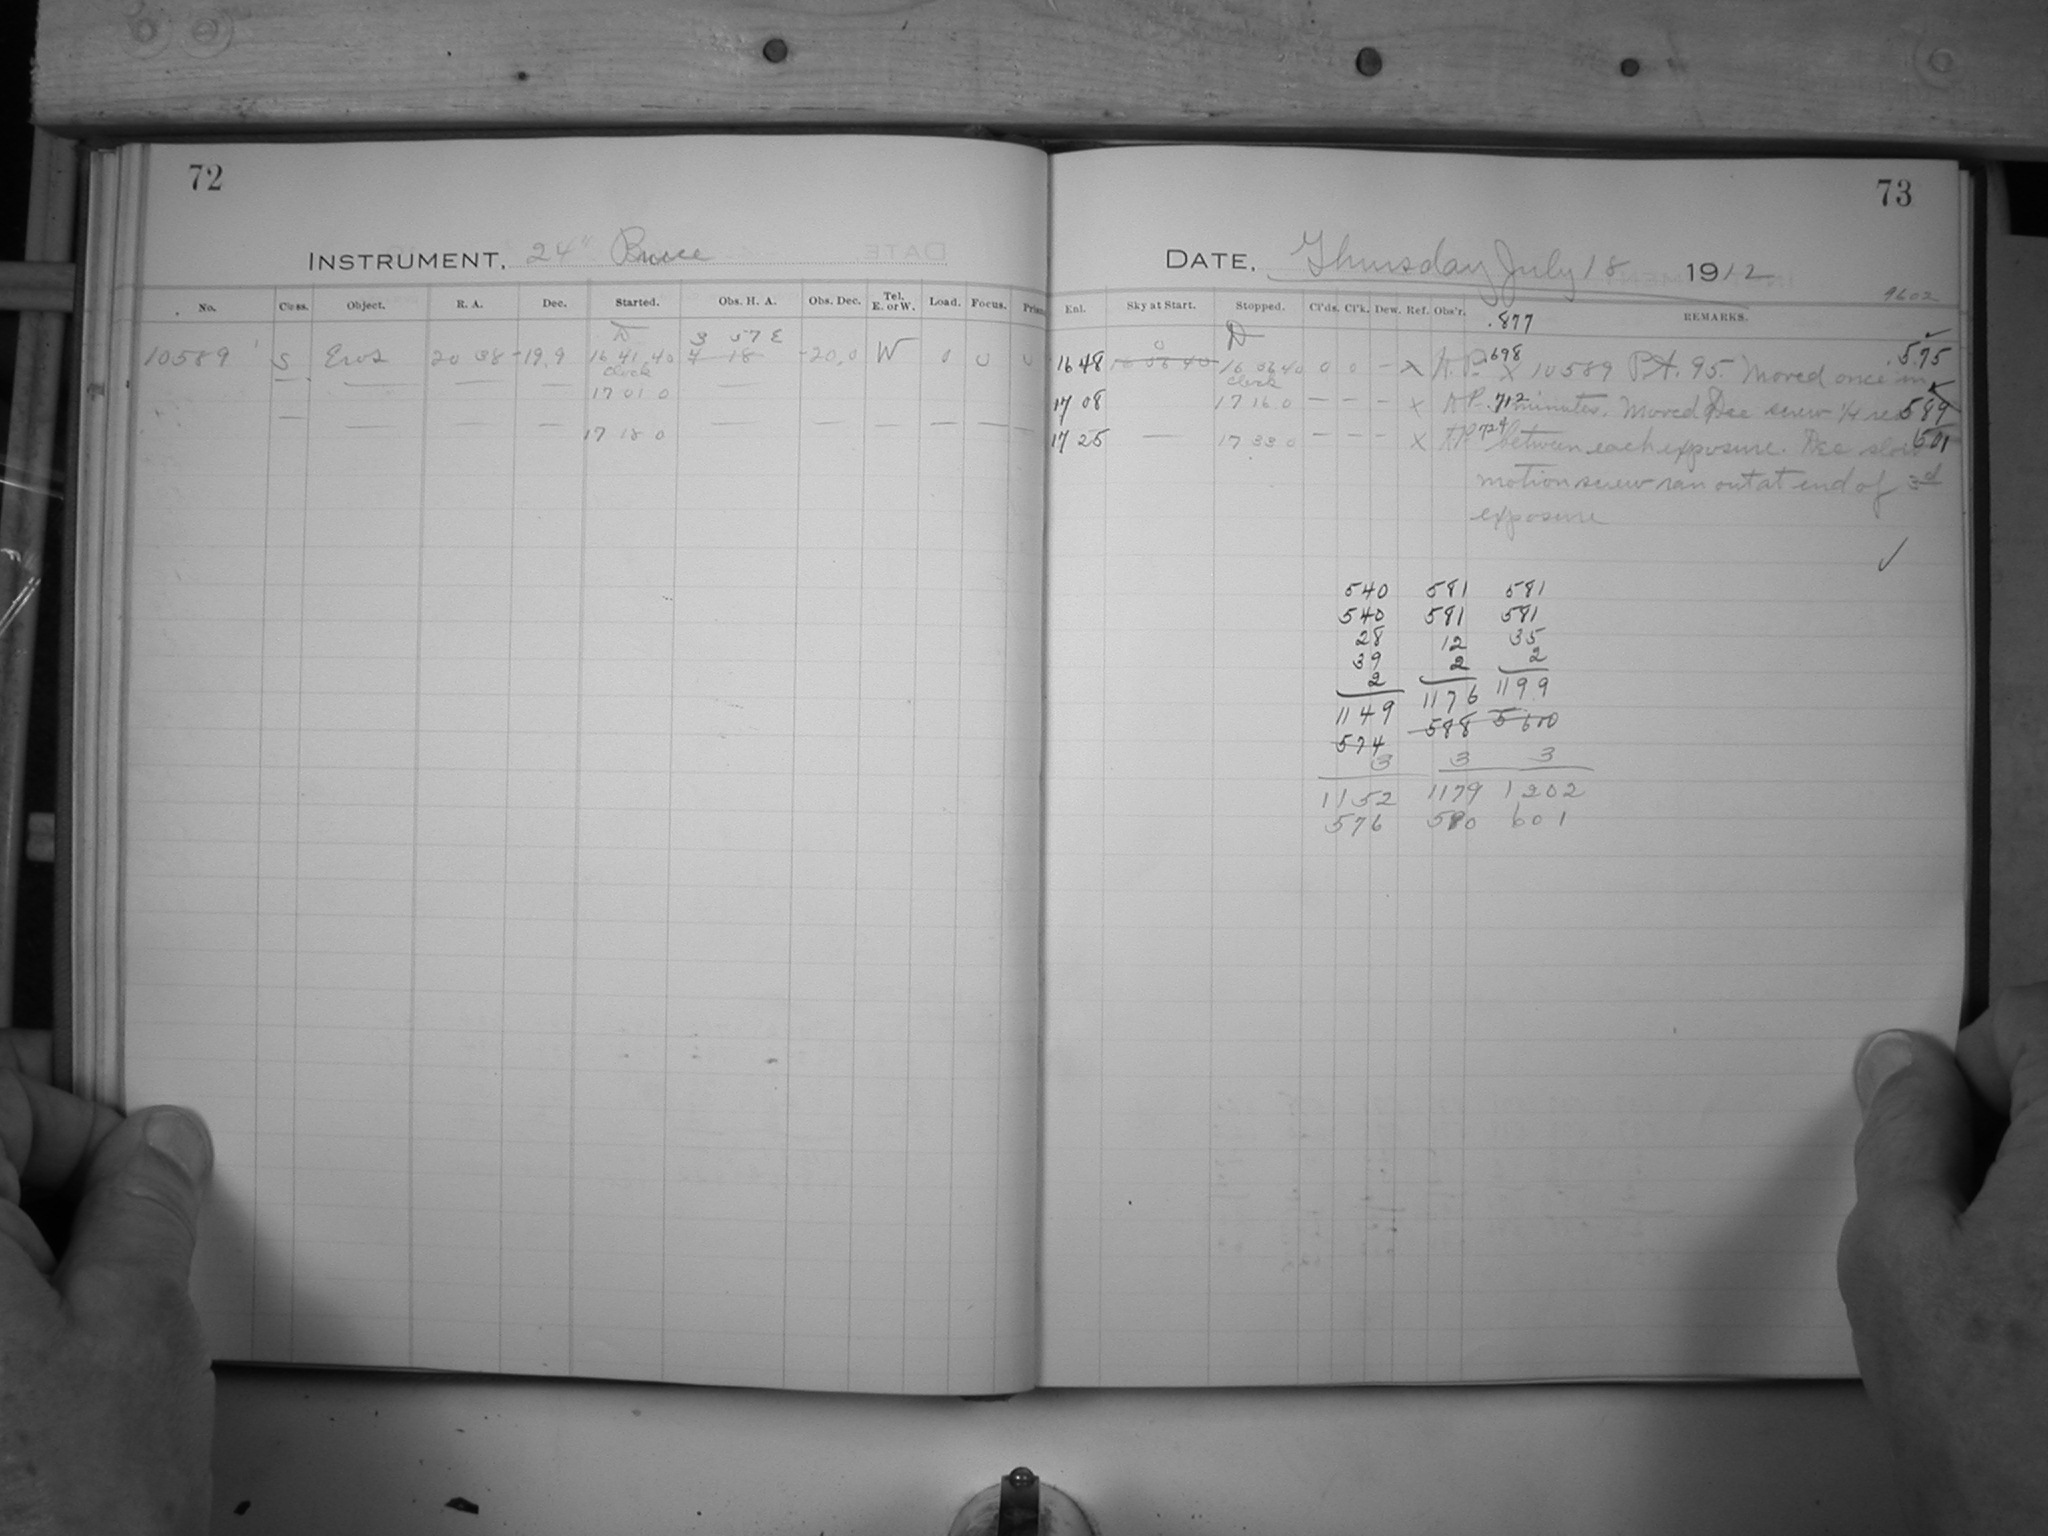 72
INSTRUMENT, 24" Bruce
No. Class. Object. R. A. Dec. Started. Obs. H. A. Obs. Dec. Tel. E. or W. Load. Focus. Prism
3 57 E
10589 S Eros 20 38 -19.9 16 41 40 4 18 -20.0 W 0 0 0
clock
— — — — 17 01 0 —
— — — — 17 18 0 — — — — — — —
73
DATE, Thursday July 18 1912
9602
Enl. Sky at Start. Stopped. Cl'ds. Cl'k. Dew. Ref. Obs'r. REMARKS.
.877
16 48 16 56 40 16 56 40 0 0 – x A.P. .698 x 10589 P.A. 95. Moved once in 575
clock
17 08 17 16 0 – – – x A.P. .712 minutes. Moved Dec screw 1/4 rev 589
17 25 — 17 33 0 – – – x A.P. 724 between each exposure. Dec slow 601
motion screw ran out at end of 3d
exposure
540 581 581
540 581 581
28 12 35
39 2 2
2 1176 1199
1149 588 600
574
3 3 3
1152 1179 1202
576 590 601